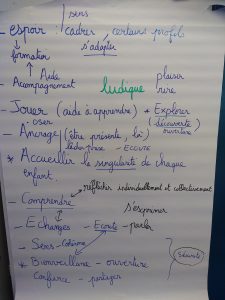 sens
- espoir : cadres / certains profils
s'adapter
formation
Aide
- Accompagnement
ludique
plaisir
rire
- Jouer (aide à apprendre) * Explorer
oser
(découverte)
ouverture
- Ancrage (être présente, là)
lâcher prise - ECOUTE
* Accueillir la singularité de chaque
enfant.
- Comprendre
réfléchir individuellement et collectivement
s'exprimer
- Echanges - Ecoute - parler
- Sens - Cohérence
* Bienveillance - ouverture
Confiance - partager
Sécurité